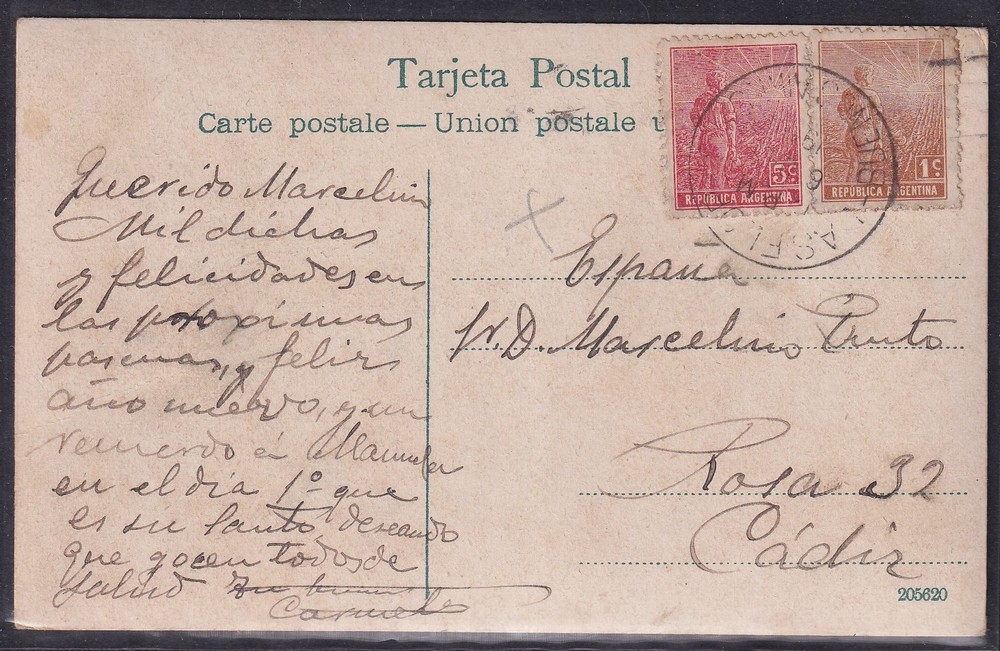 Tarjeta Postal
Carte postale — Union postale u
5c
REPUBLICA ARGENTINA
1c
REPUBLICA ARGENTINA
Querido Marcelino
Mil dichas
y felicidades en
las proximas
pascuas, y feliz
año nuevo, y un
recuerdo á Manuela
en el dia 1º que
es su santo deseando
que gocen todos de
salud Tu
Carmelo
España
Sr. D. Marcelino Pinto
Rosa 32
Cádiz
205620